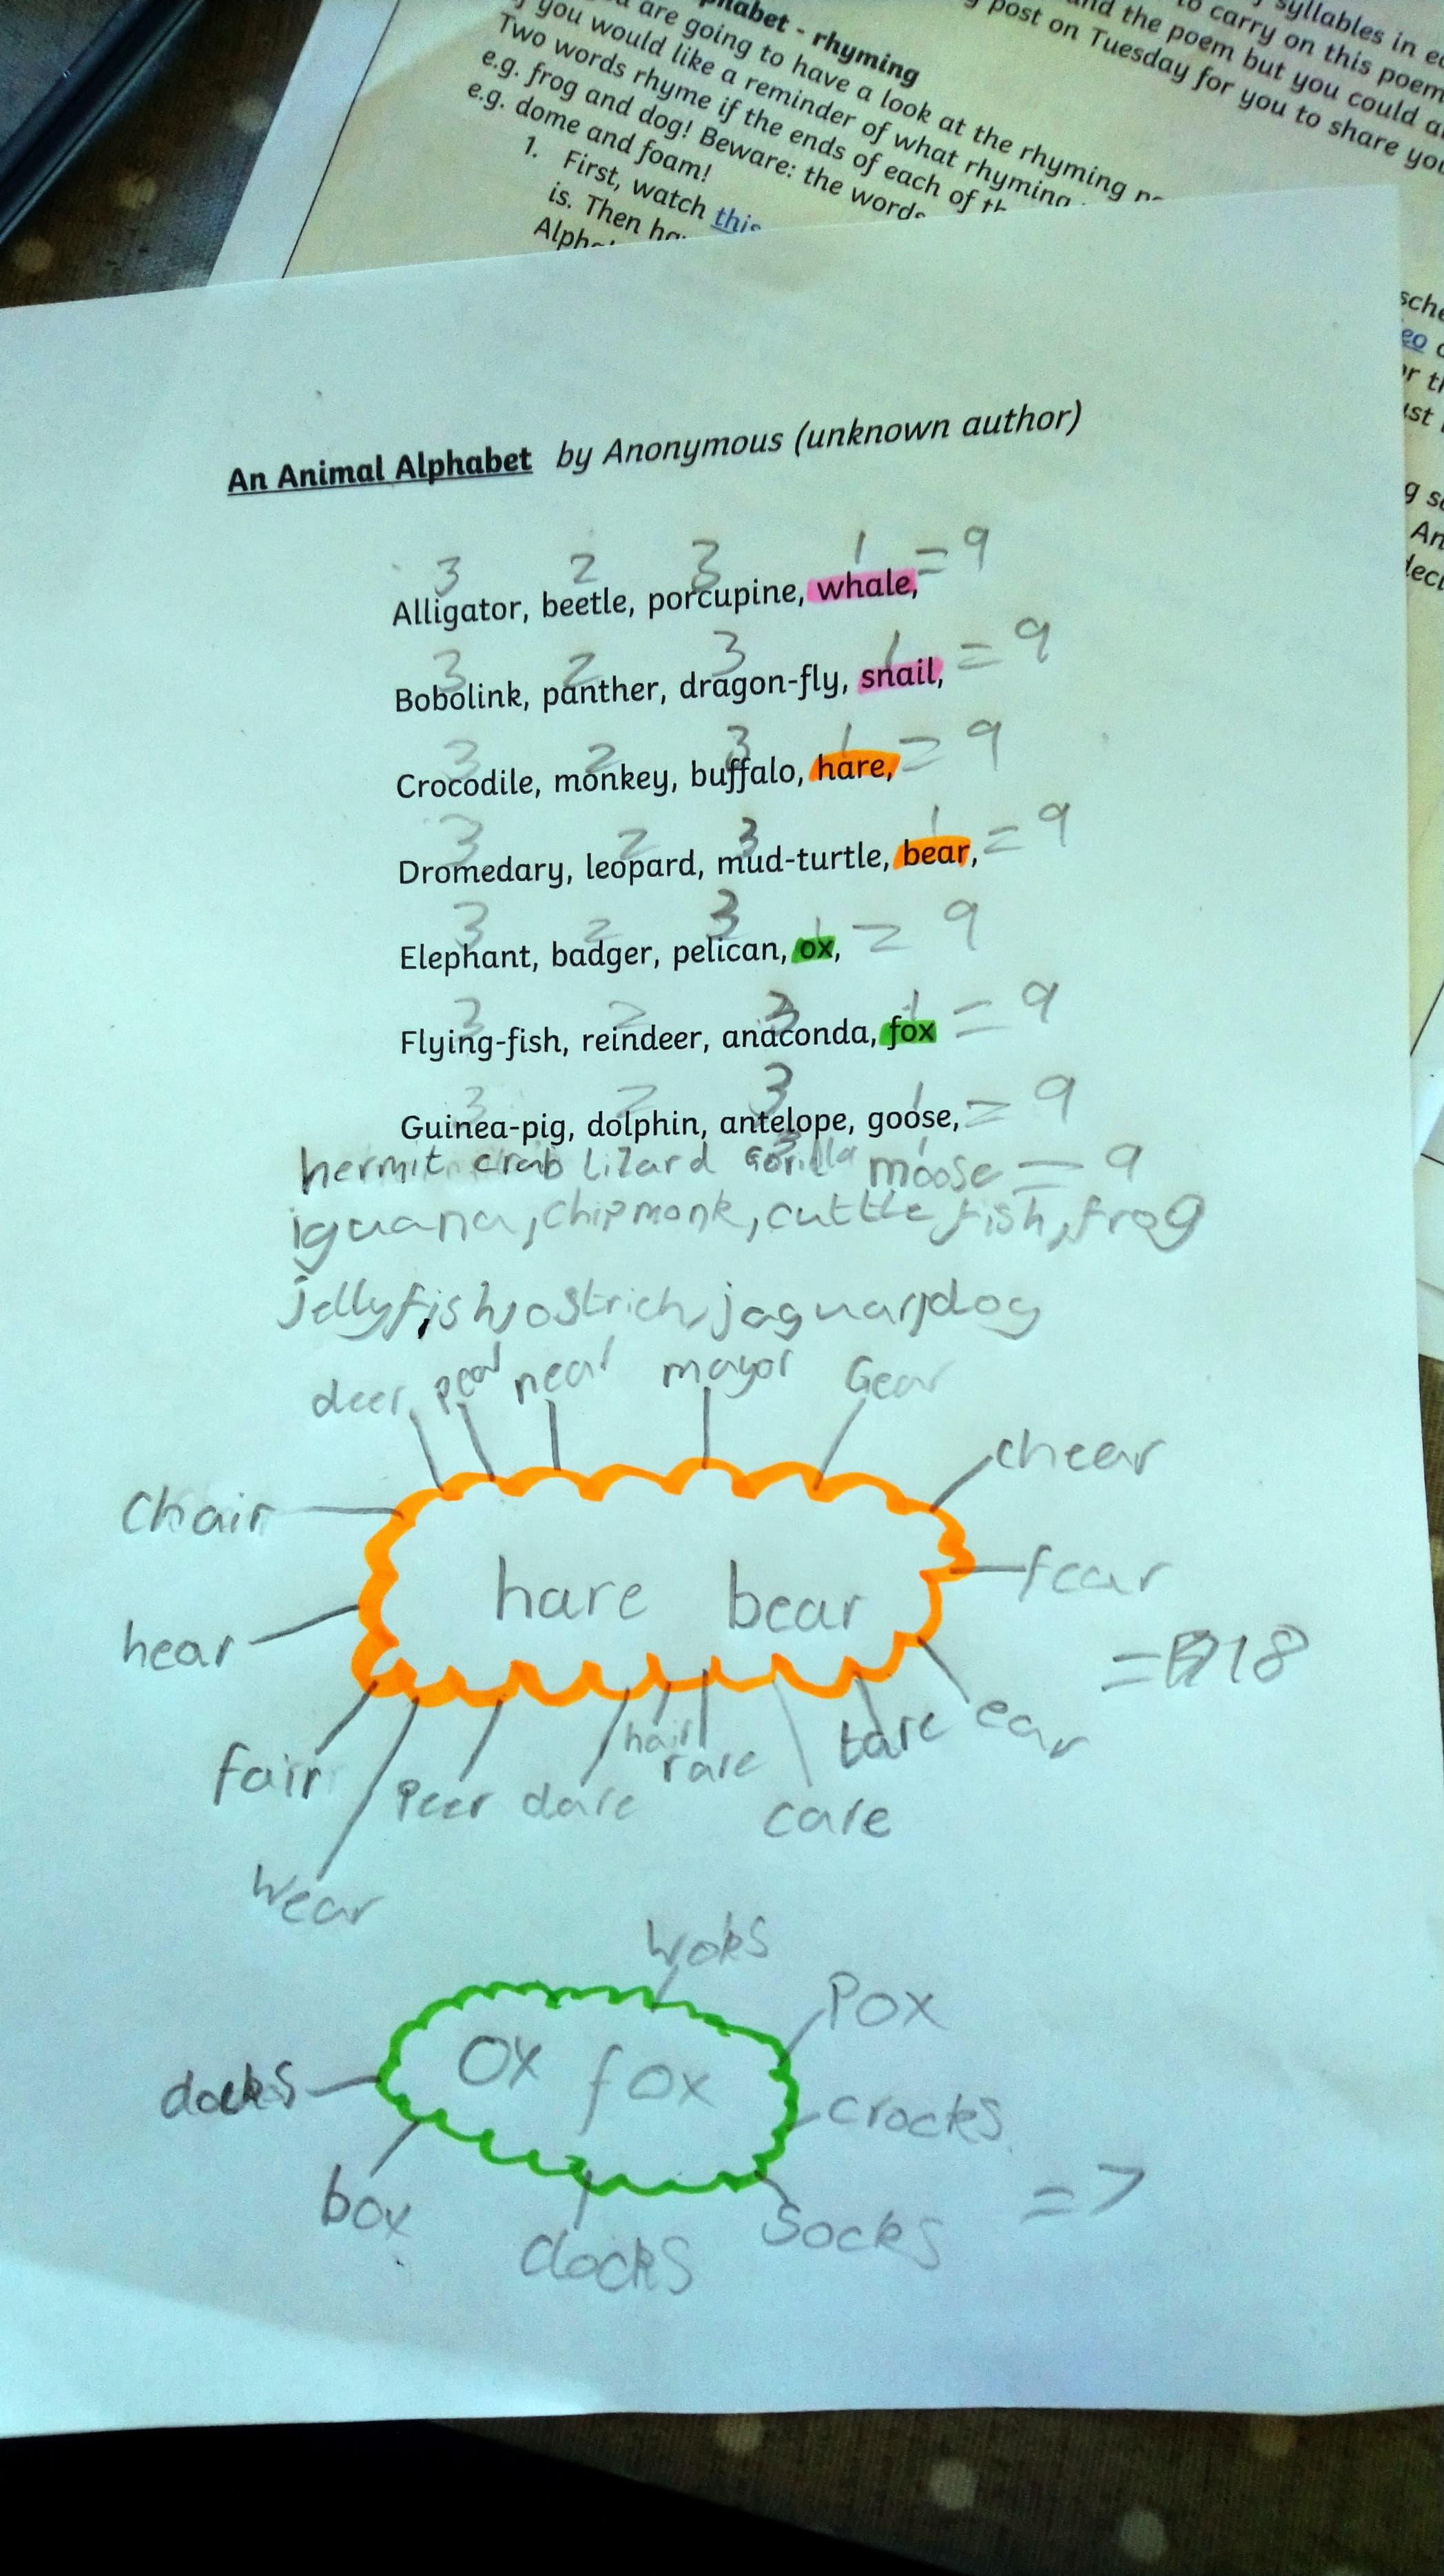 phabet - rhyming
are going to have a look at the rhyming
you would like a reminder of what rhyming
Two words rhyme if the ends of each of th
e.g. frog and dog! Beware: the words
e.g. dome and foam!
1. First, watch this
is. Then ha
Alpha
syllables in
to carry on this poem
nd the poem but you could a
post on Tuesday for you to share you
sche
eo
r th
ust
g s
An
decl
An Animal Alphabet by Anonymous (unknown author)
3 2 3 1 = 9
Alligator, beetle, porcupine, whale,
3 2 3 1 = 9
Bobolink, panther, dragon-fly, snail,
3 2 3 1 = 9
Crocodile, monkey, buffalo, hare,
3 2 3 1 = 9
Dromedary, leopard, mud-turtle, bear,
3 2 3 1 = 9
Elephant, badger, pelican, ox,
3 2 3 1 = 9
Flying-fish, reindeer, anaconda, fox
3 2 3 1 = 9
Guinea-pig, dolphin, antelope, goose,
hermit crab lizard Gorilla moose = 9
iguana, chipmonk, cuttle fish, frog
jellyfish, ostrich, jaguar, dog
deer near mayor Gear
chear
chair
hare bear
fear
hear
= 18
fair peer dare hair rare care tare ear
wear
woks
Pox
ox fox
docks
crocks
box
clocks
Socks
= 7